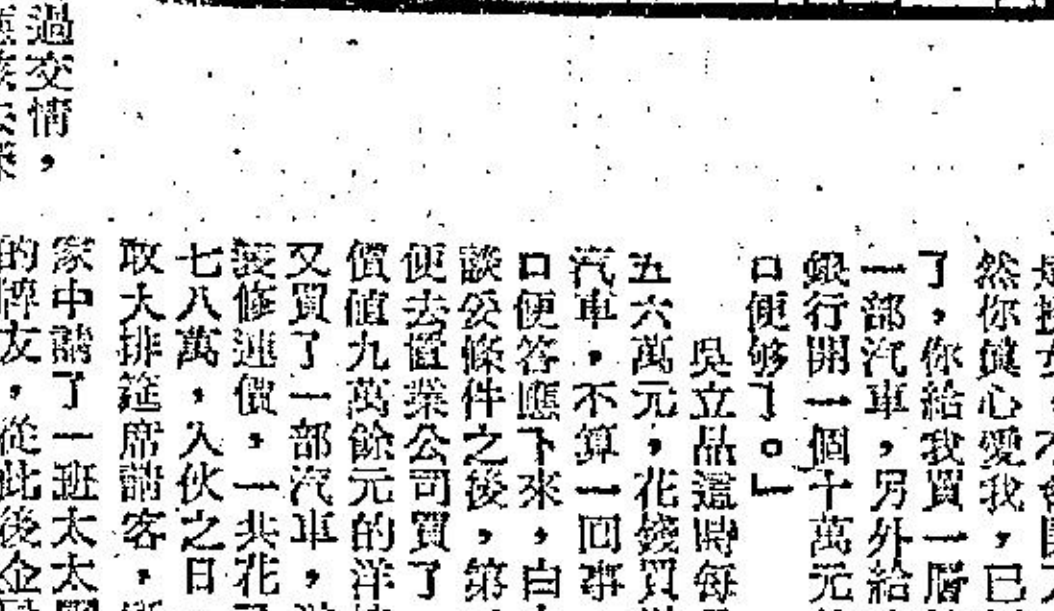 然你眞心愛我，已
了，你給我買一層
一部汽車，另外給
銀行開一個十萬元
口便够了。」
吳立品這時每
五六萬元，花錢買
汽車，不算一回事
口便答應下來，白
談妥條件之後，第
便去置業公司買了
價値九萬餘元的洋
又買了一部汽車，
裝修連價，一共花
七八萬，入伙之日
取大排筵席請客，
家中請了一班太太
的牌友，從此後金
過交情，